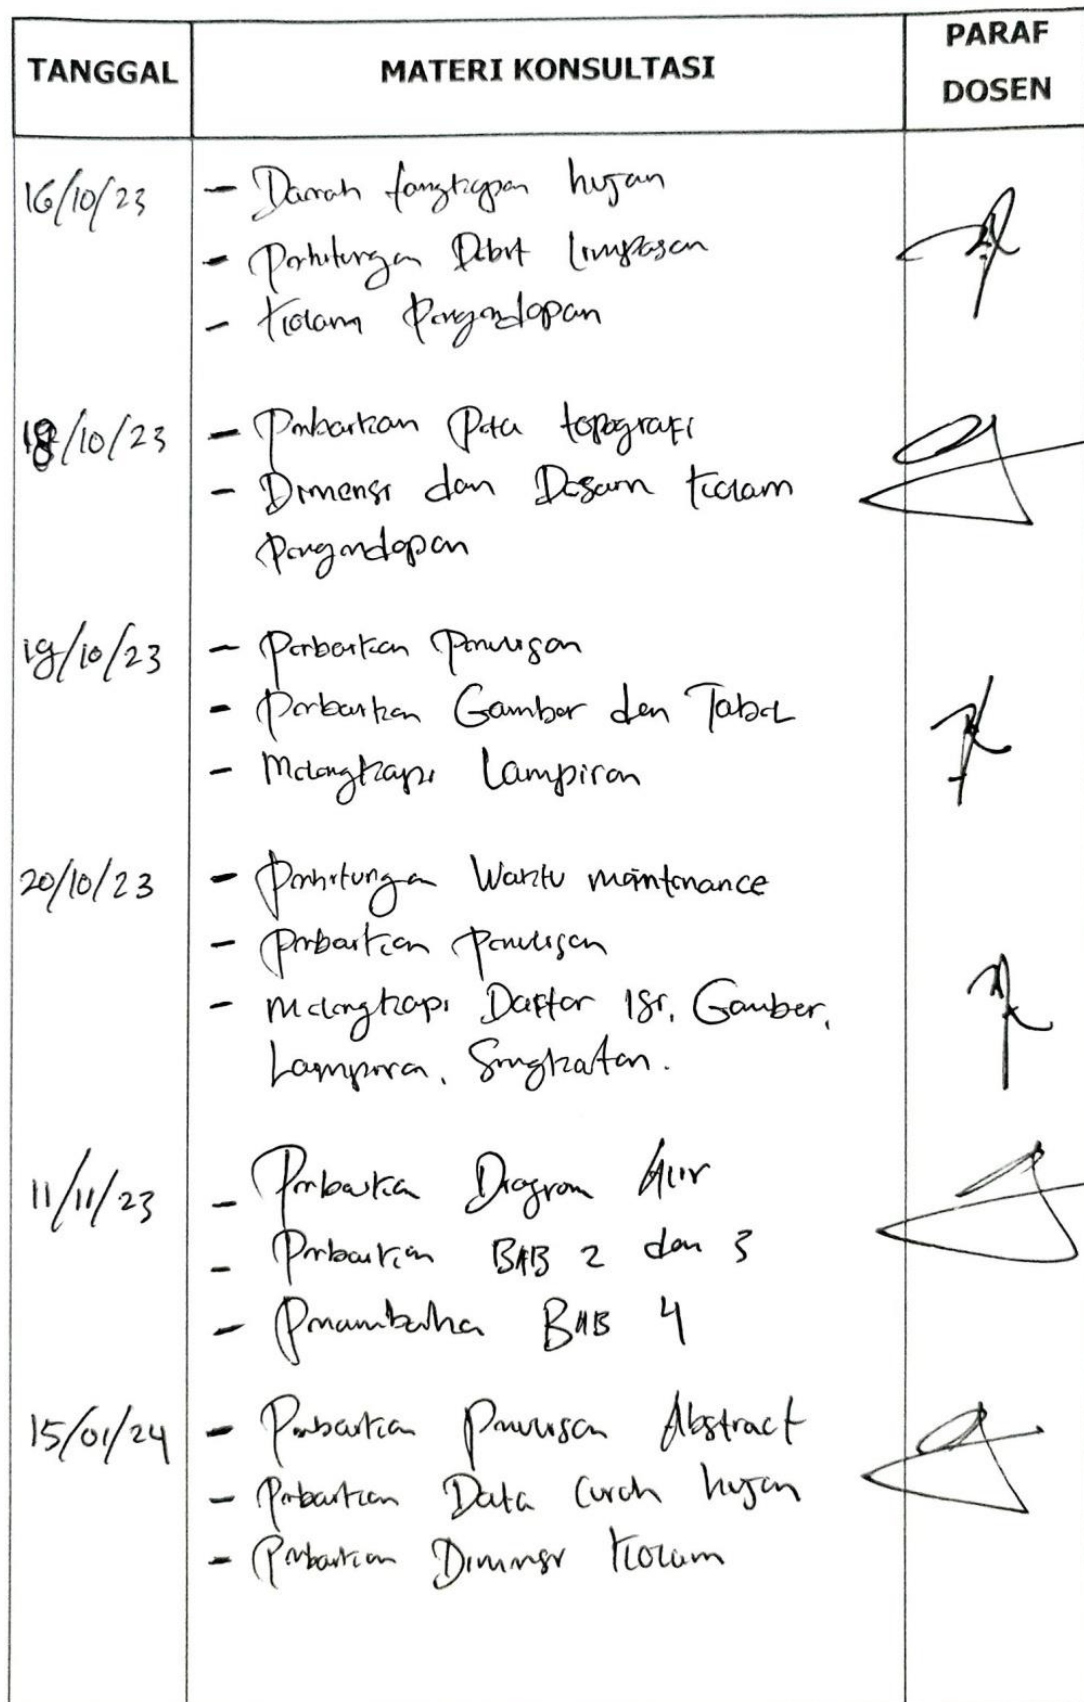 TANGGAL
MATERI KONSULTASI
PARAF
DOSEN
16/10/23
- Daerah tangkapan hujan
- Perhitungan Debit Limpasan
- Kolam Pengendapan
18/10/23
- Perbaikan Peta topografi
- Dimensi dan Desain Kolam
Pengendapan
19/10/23
- Perbaikan Penulisan
- Perbaikan Gambar dan Tabel
- Melengkapi Lampiran
20/10/23
- Perhitungan Waktu maintenance
- Perbaikan Penulisan
- Melengkapi Daftar Isi, Gambar,
Lampiran, Singkatan.
11/11/23
- Perbaikan Diagram Alir
- Perbaikan BAB 2 dan 3
- Penambahan BAB 4
15/01/24
- Perbaikan Penulisan Abstract
- Perbaikan Data Curah hujan
- Perbaikan Dimensi Kolam